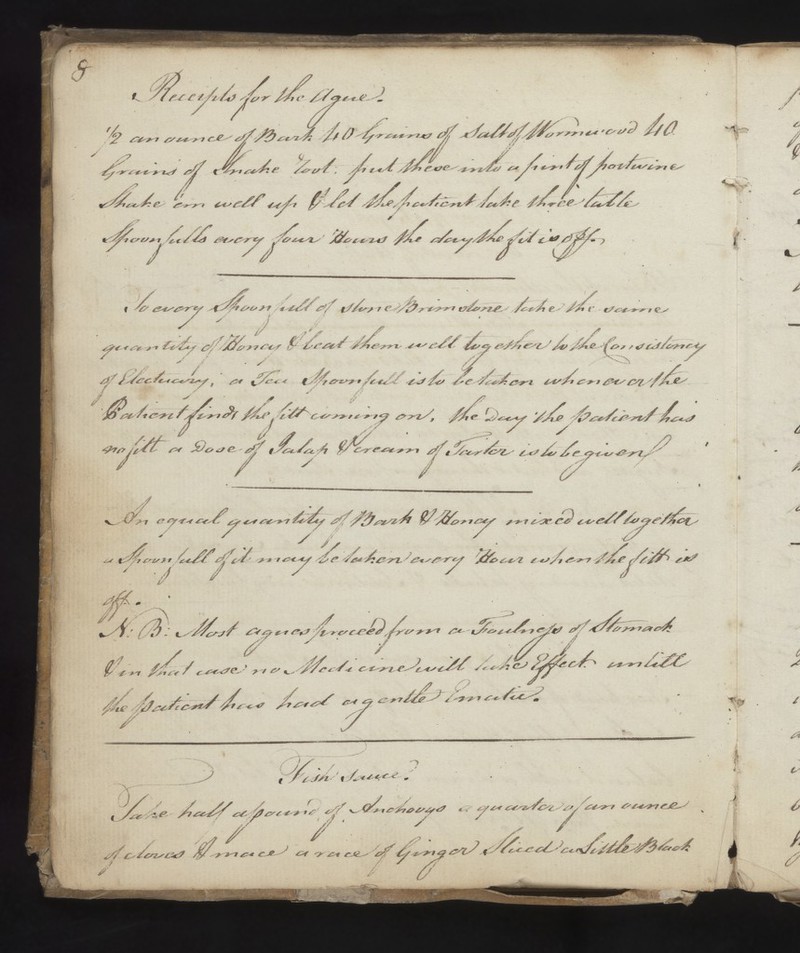 8
Receipts for the Ague.
1/2 an ounce of Bark 40 Grains of Salt of Wormwood 40
Grains of Snake root. put these into a pint of portwine
Shake em well up & let the patient take three table
Spoonfulls every four Hours the day the fit is off.
To every Spoonfull of stone Brimstone take the same
quantity of Honey & beat them well together to the Consistency
of Electuary; a Tea Spoonfull is to be taken whenever the
Patient finds the fitt coming on. the Day the patient has
no fitt a Dose of Jalap & cream of Tarter is to be given
An equal quantity of Bark & Honey mixed well together
a Spoonfull of it may be taken every Hour when the fitt is
off.
N: B: Most agues proceed from a Foulness of Stomach
& in that case no Medicine will take Effect untill
the patient has had a gentle Ematic.
Fish Sauce
Take half a pound of Anchovys a quarter of an ounce
of cloves & mace a race of Ginger Sliced a Little Black